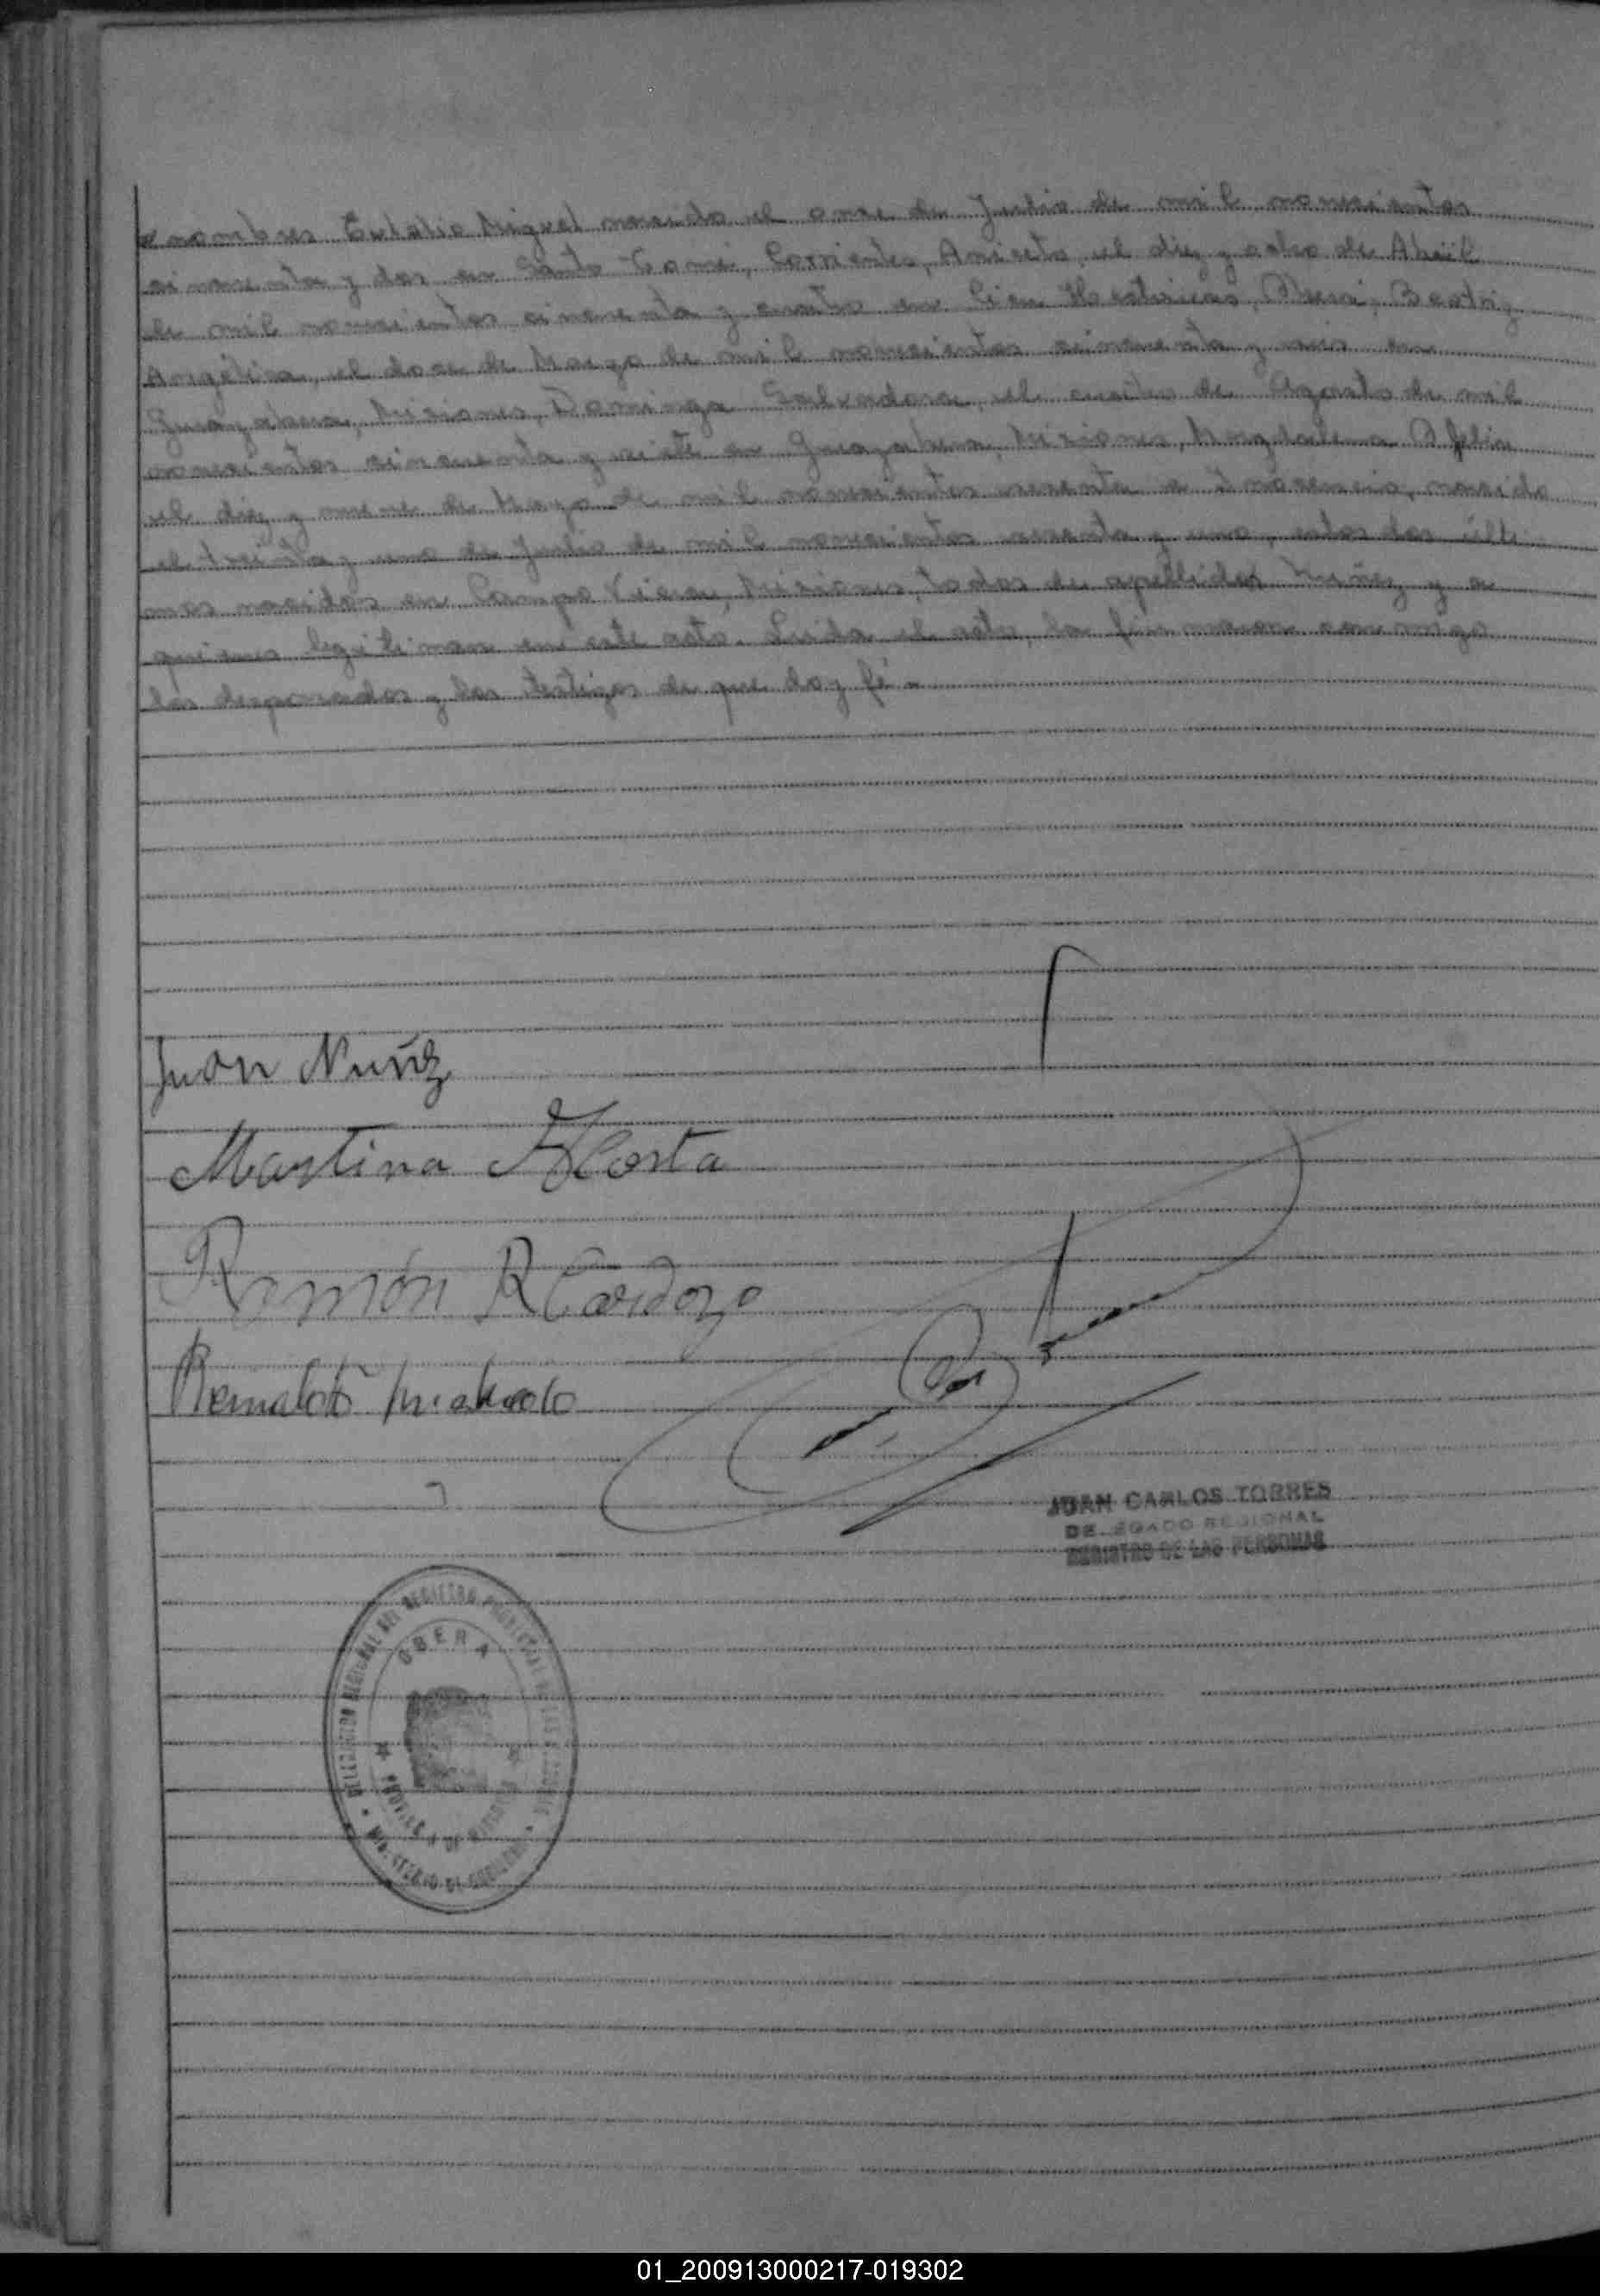 nombres Eulalio Miguel nacido el once de Julio de mil novecientos
cincuenta y dos en Santo Tomé, Corrientes, Aniceto, el diez y ocho de Abril
de mil novecientos cincuenta y cuatro en Cien Hectáreas, Beatriz
Angélica, el doce de Marzo de mil novecientos cincuenta y seis en
Guayabera, Misiones, Dominga Salvadora, el cuatro de Agosto de mil
novecientos cincuenta y siete en Guayabera, Misiones, Magdalena Ofelia
el diez y nueve de Mayo de mil novecientos sesenta e Inocencio, nacido
el treinta y uno de Julio de mil novecientos sesenta y uno, estos dos últi
mos nacidos en Campo Viera, Misiones, todos de apellidos Nuñez y a
quienes legitiman en este acto. Leída el acta, la firmaron conmigo
los desposados y los testigos de que doy fé.
Juan Nuñz
Martina Acosta
Ramón R Cardozo
JUAN CARLOS TORRES
DELEGADO REGIONAL
REGISTRO DE LAS PERSONAS
DELEGACION REGIONAL DEL REGISTRO PROVINCIAL DE LAS PERSONAS
OBERA
PROVINCIA DE MISIONES
MINISTERIO DE GOBIERNO
01_200913000217-019302